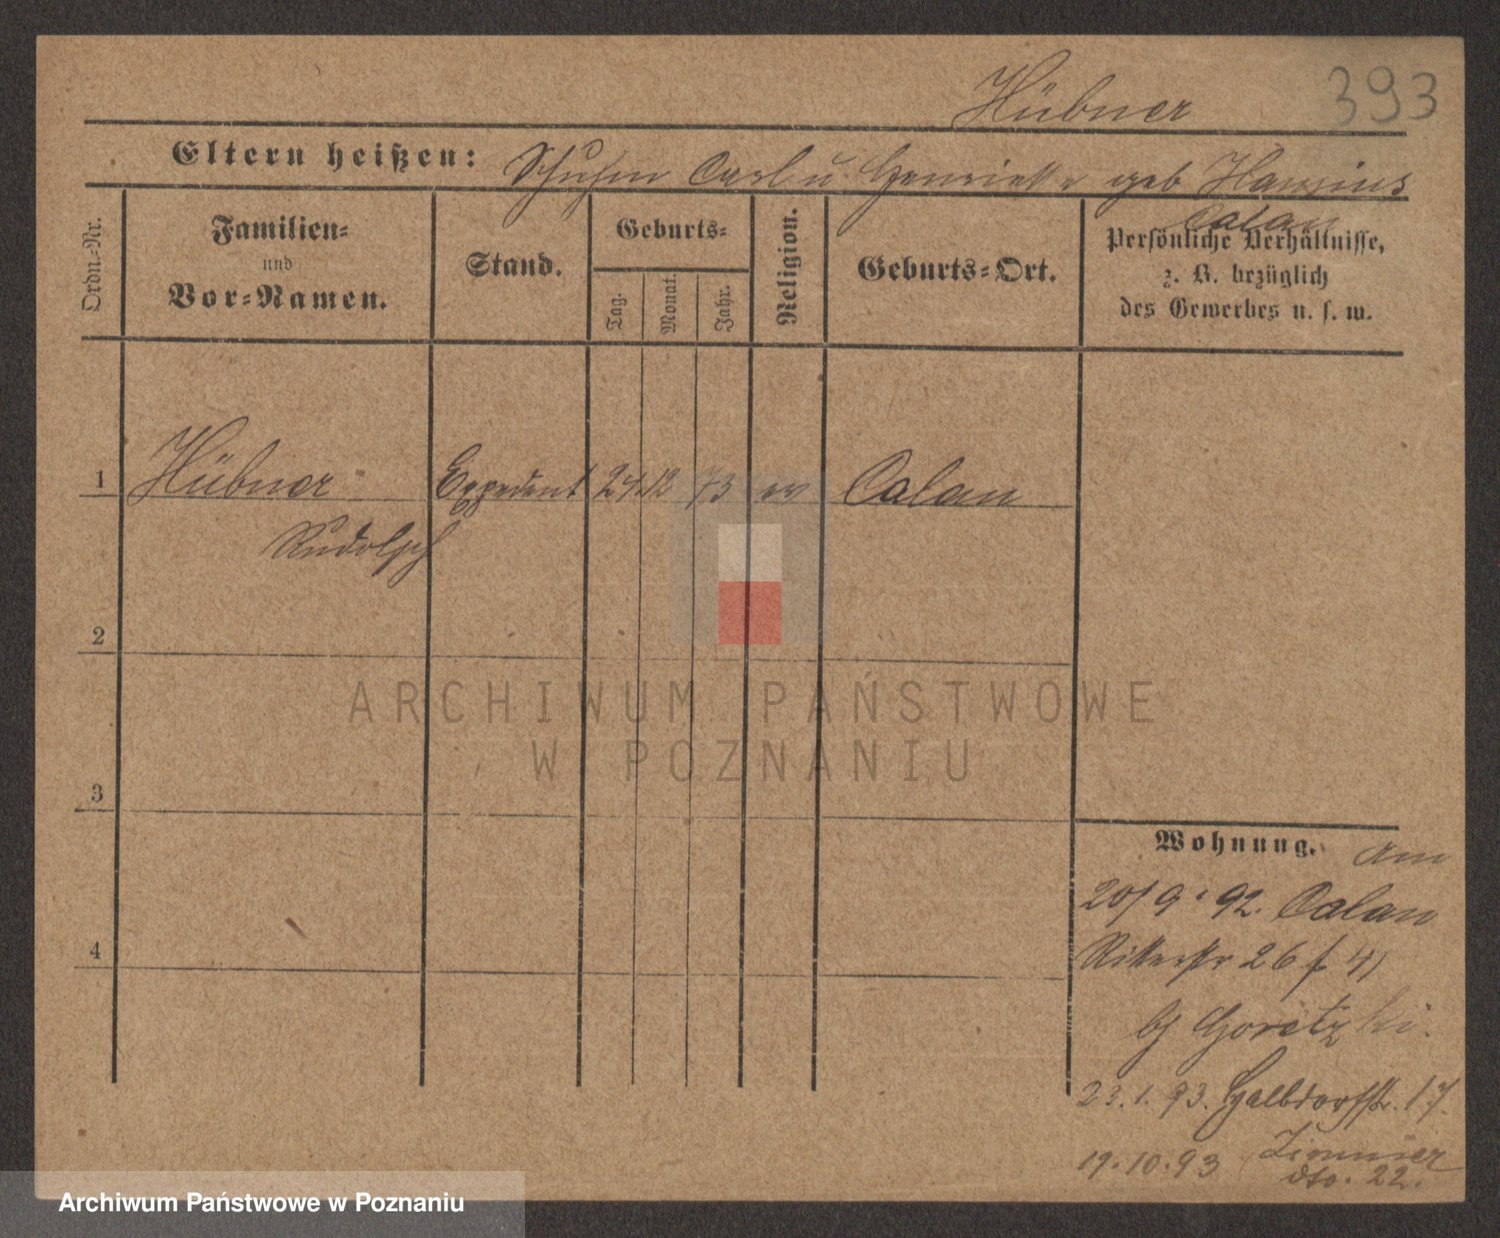 Hübner 393
Eltern heißen: Carl u. Henriette geb
Calau
Ordn.-Nr.
Familien-
und
Vor-Namen.
Stand.
Geburts-
Tag.
Monat.
Jahr.
Religion.
Geburts-Ort.
Persönliche Verhältnisse,
z. B. bezüglich
des Gewerbes u. s. w.
1 Hübner Expedient 24 12 73 ev Calau
Rudolph
2
3
4
Wohnung. am
20/9.92. Calau
Ritterstr 26
Goretzki.
23.1.93. Halbdorfstr. 17.
19.10.93 Zimmer
dto. 22.
ARCHIWUM PAŃSTWOWE
W POZNANIU
Archiwum Państwowe w Poznaniu